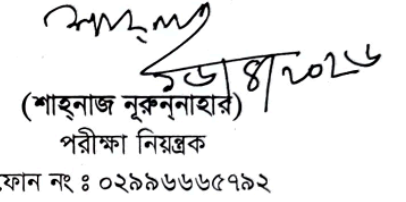 শাহ্‌নাজ
১৬/৪/২০২৬
(শাহ্‌নাজ নূরুন্‌নাহার)
পরীক্ষা নিয়ন্ত্রক
ফোন নং ঃ ০২৯৯৬৬৬৫৭৯২